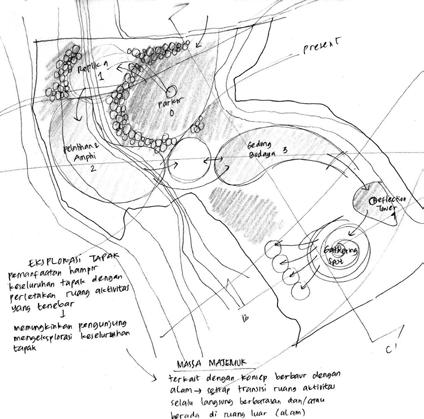 present
Replika
1
Parkir
0
Pelataran &
Amphi
2
Gedung
Budaya 3
Reflection
Tower
4
Gathering
Spot
B
C'
EKSPLORASI TAPAK
pemanfaatan hampir
keseluruhan tapak dengan
perletakan ruang aktivitas
yang tersebar
memungkinkan pengunjung
mengeksplorasi keseluruhan
tapak
MASSA MAJEMUK
terkait dengan konsep berbaur dengan
alam → setiap transisi ruang aktivitas
selalu langsung berbatasan dan/atau
berada di ruang luar (alam)